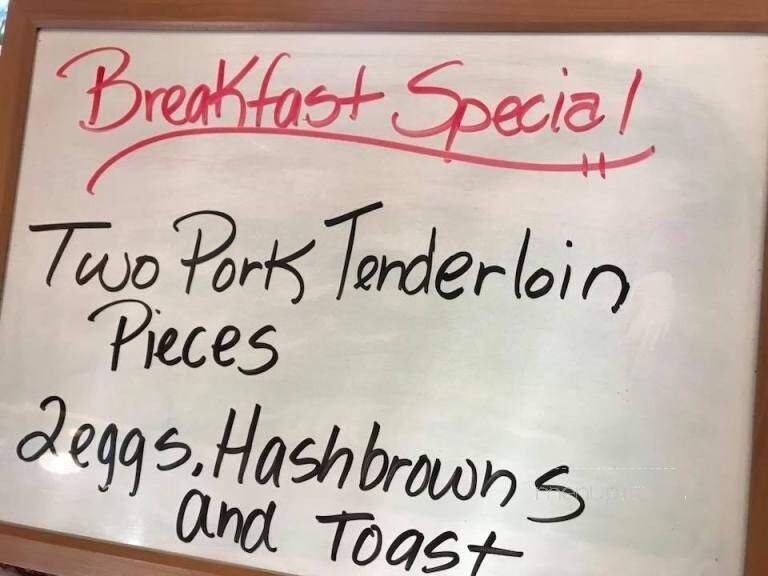 Breakfast Special
Two Pork Tenderloin
Pieces
2eggs, Hashbrowns
and Toast